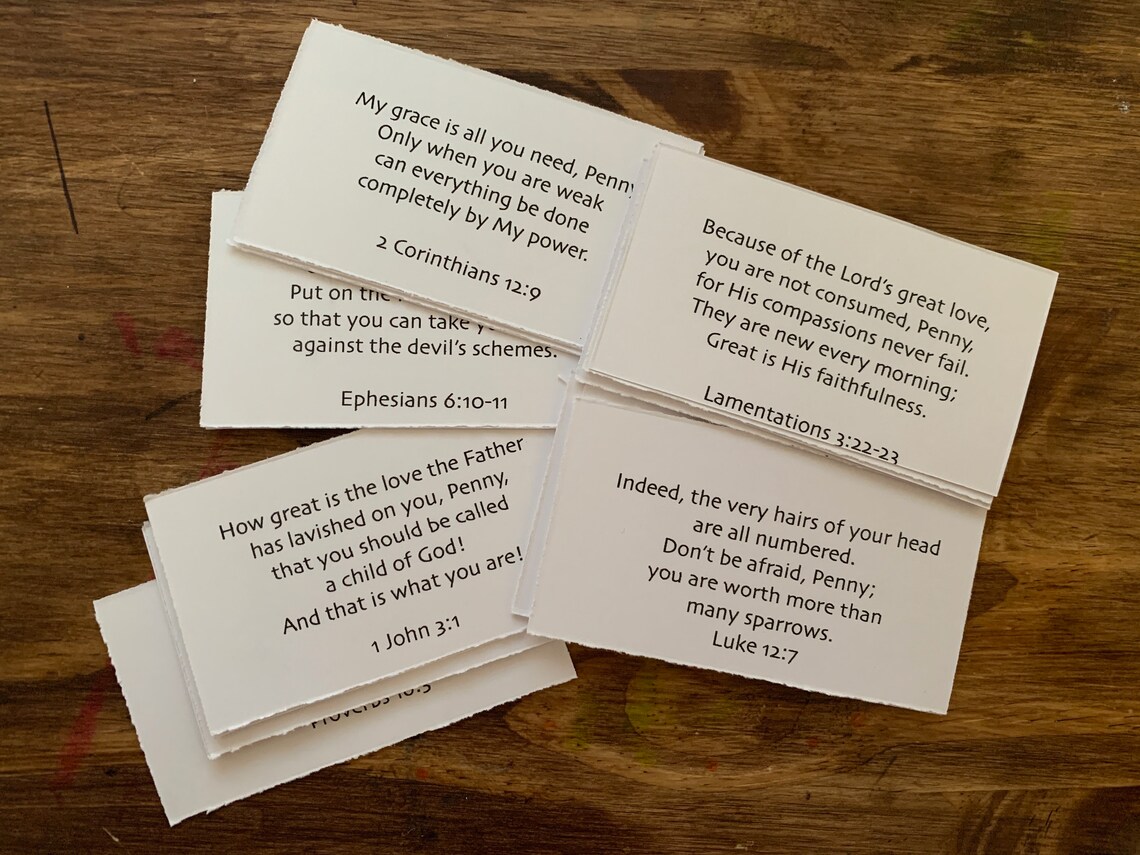 My grace is all you need, Penny
Only when you are weak
can everything be done
completely by My power.
2 Corinthians 12:9
Because of the Lord's great love,
you are not consumed, Penny,
for His compassions never fail.
They are new every morning;
Great is His faithfulness.
Lamentations 3:22-23
Put on the
so that you can take
against the devil's schemes.
Ephesians 6:10-11
How great is the love the Father
has lavished on you, Penny,
that you should be called
a child of God!
And that is what you are!
1 John 3:1
Indeed, the very hairs of your head
are all numbered.
Don't be afraid, Penny;
you are worth more than
many sparrows.
Luke 12:7
Proverbs